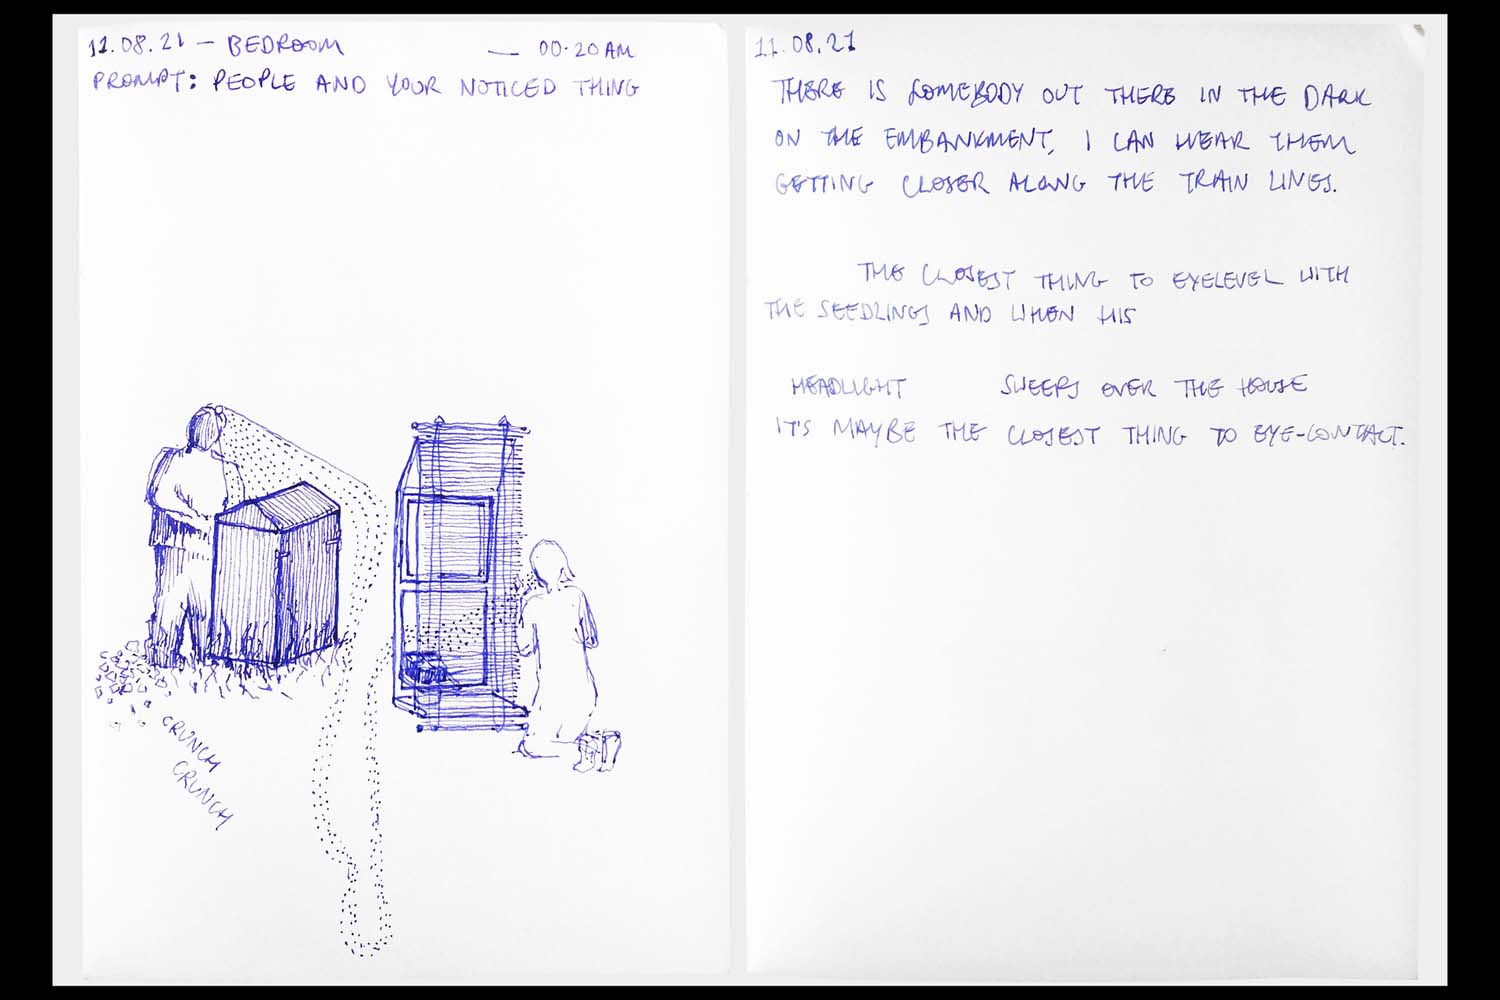 11.08.21 — BEDROOM — 00.20 AM
PROMPT: PEOPLE AND YOUR NOTICED THING
CRUNCH
CRUNCH
11.08.21
THERE IS SOMEBODY OUT THERE IN THE DARK
ON THE EMBANKMENT, I CAN HEAR THEM
GETTING CLOSER ALONG THE TRAIN LINES.
THE CLOSEST THING TO EYELEVEL WITH
THE SEEDLINGS AND WHEN HIS
HEADLIGHT SWEEPS OVER THE HOUSE
IT'S MAYBE THE CLOSEST THING TO EYE-CONTACT.